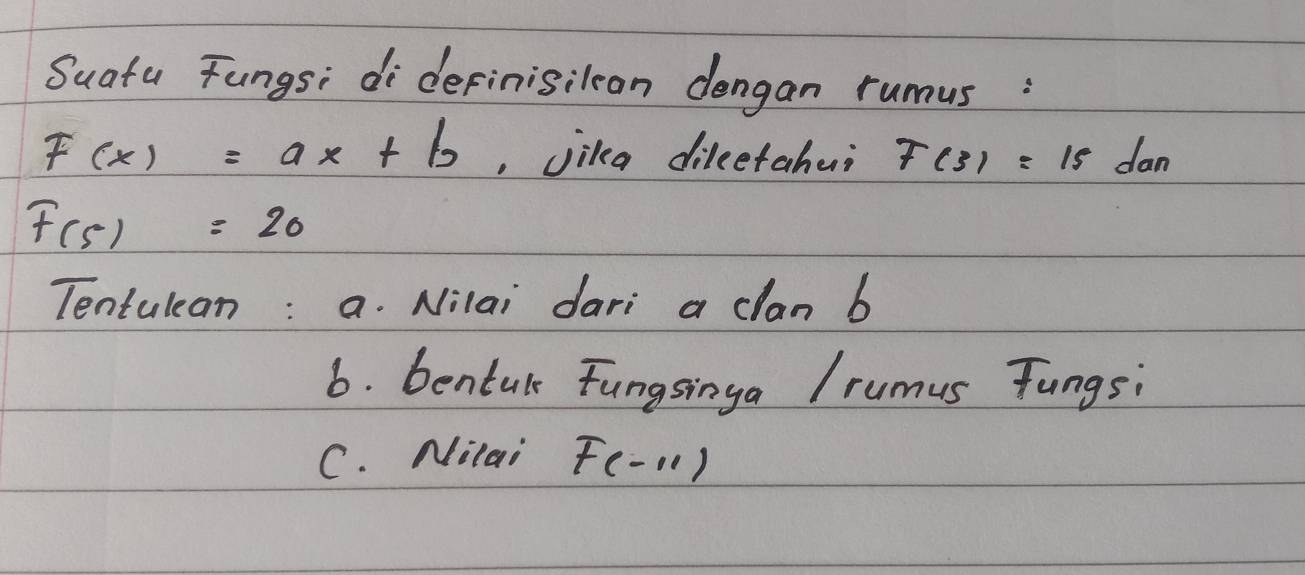 Suatu Fungsi di definisikan dengan rumus :
F(x) = ax + b, jika diketahui F(3) = 15 dan
F(5) = 20
Tentukan : a. Nilai dari a dan b
b. bentuk Fungsinya / rumus Fungsi
C. Nilai F(-11)